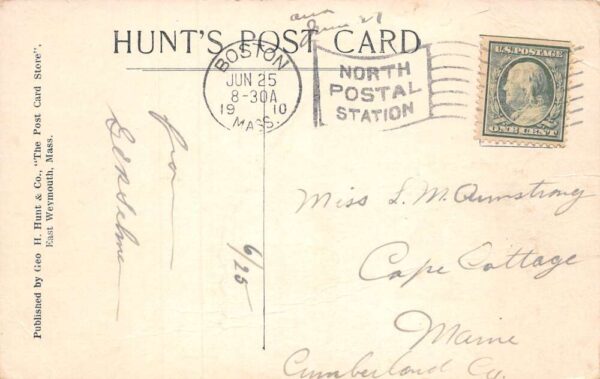 and
June 21
HUNT'S POST CARD
BOSTON
JUN 25
8-30A
19 10
MASS.
NORTH
POSTAL
STATION
U.S. POSTAGE
ONE CENT
Published by Geo H. Hunt & Co., "The Post Card Store".
East Weymouth, Mass.
from
6/25
Miss L. M. Armstrong
Cape Cottage
Maine
Cumberland Co.